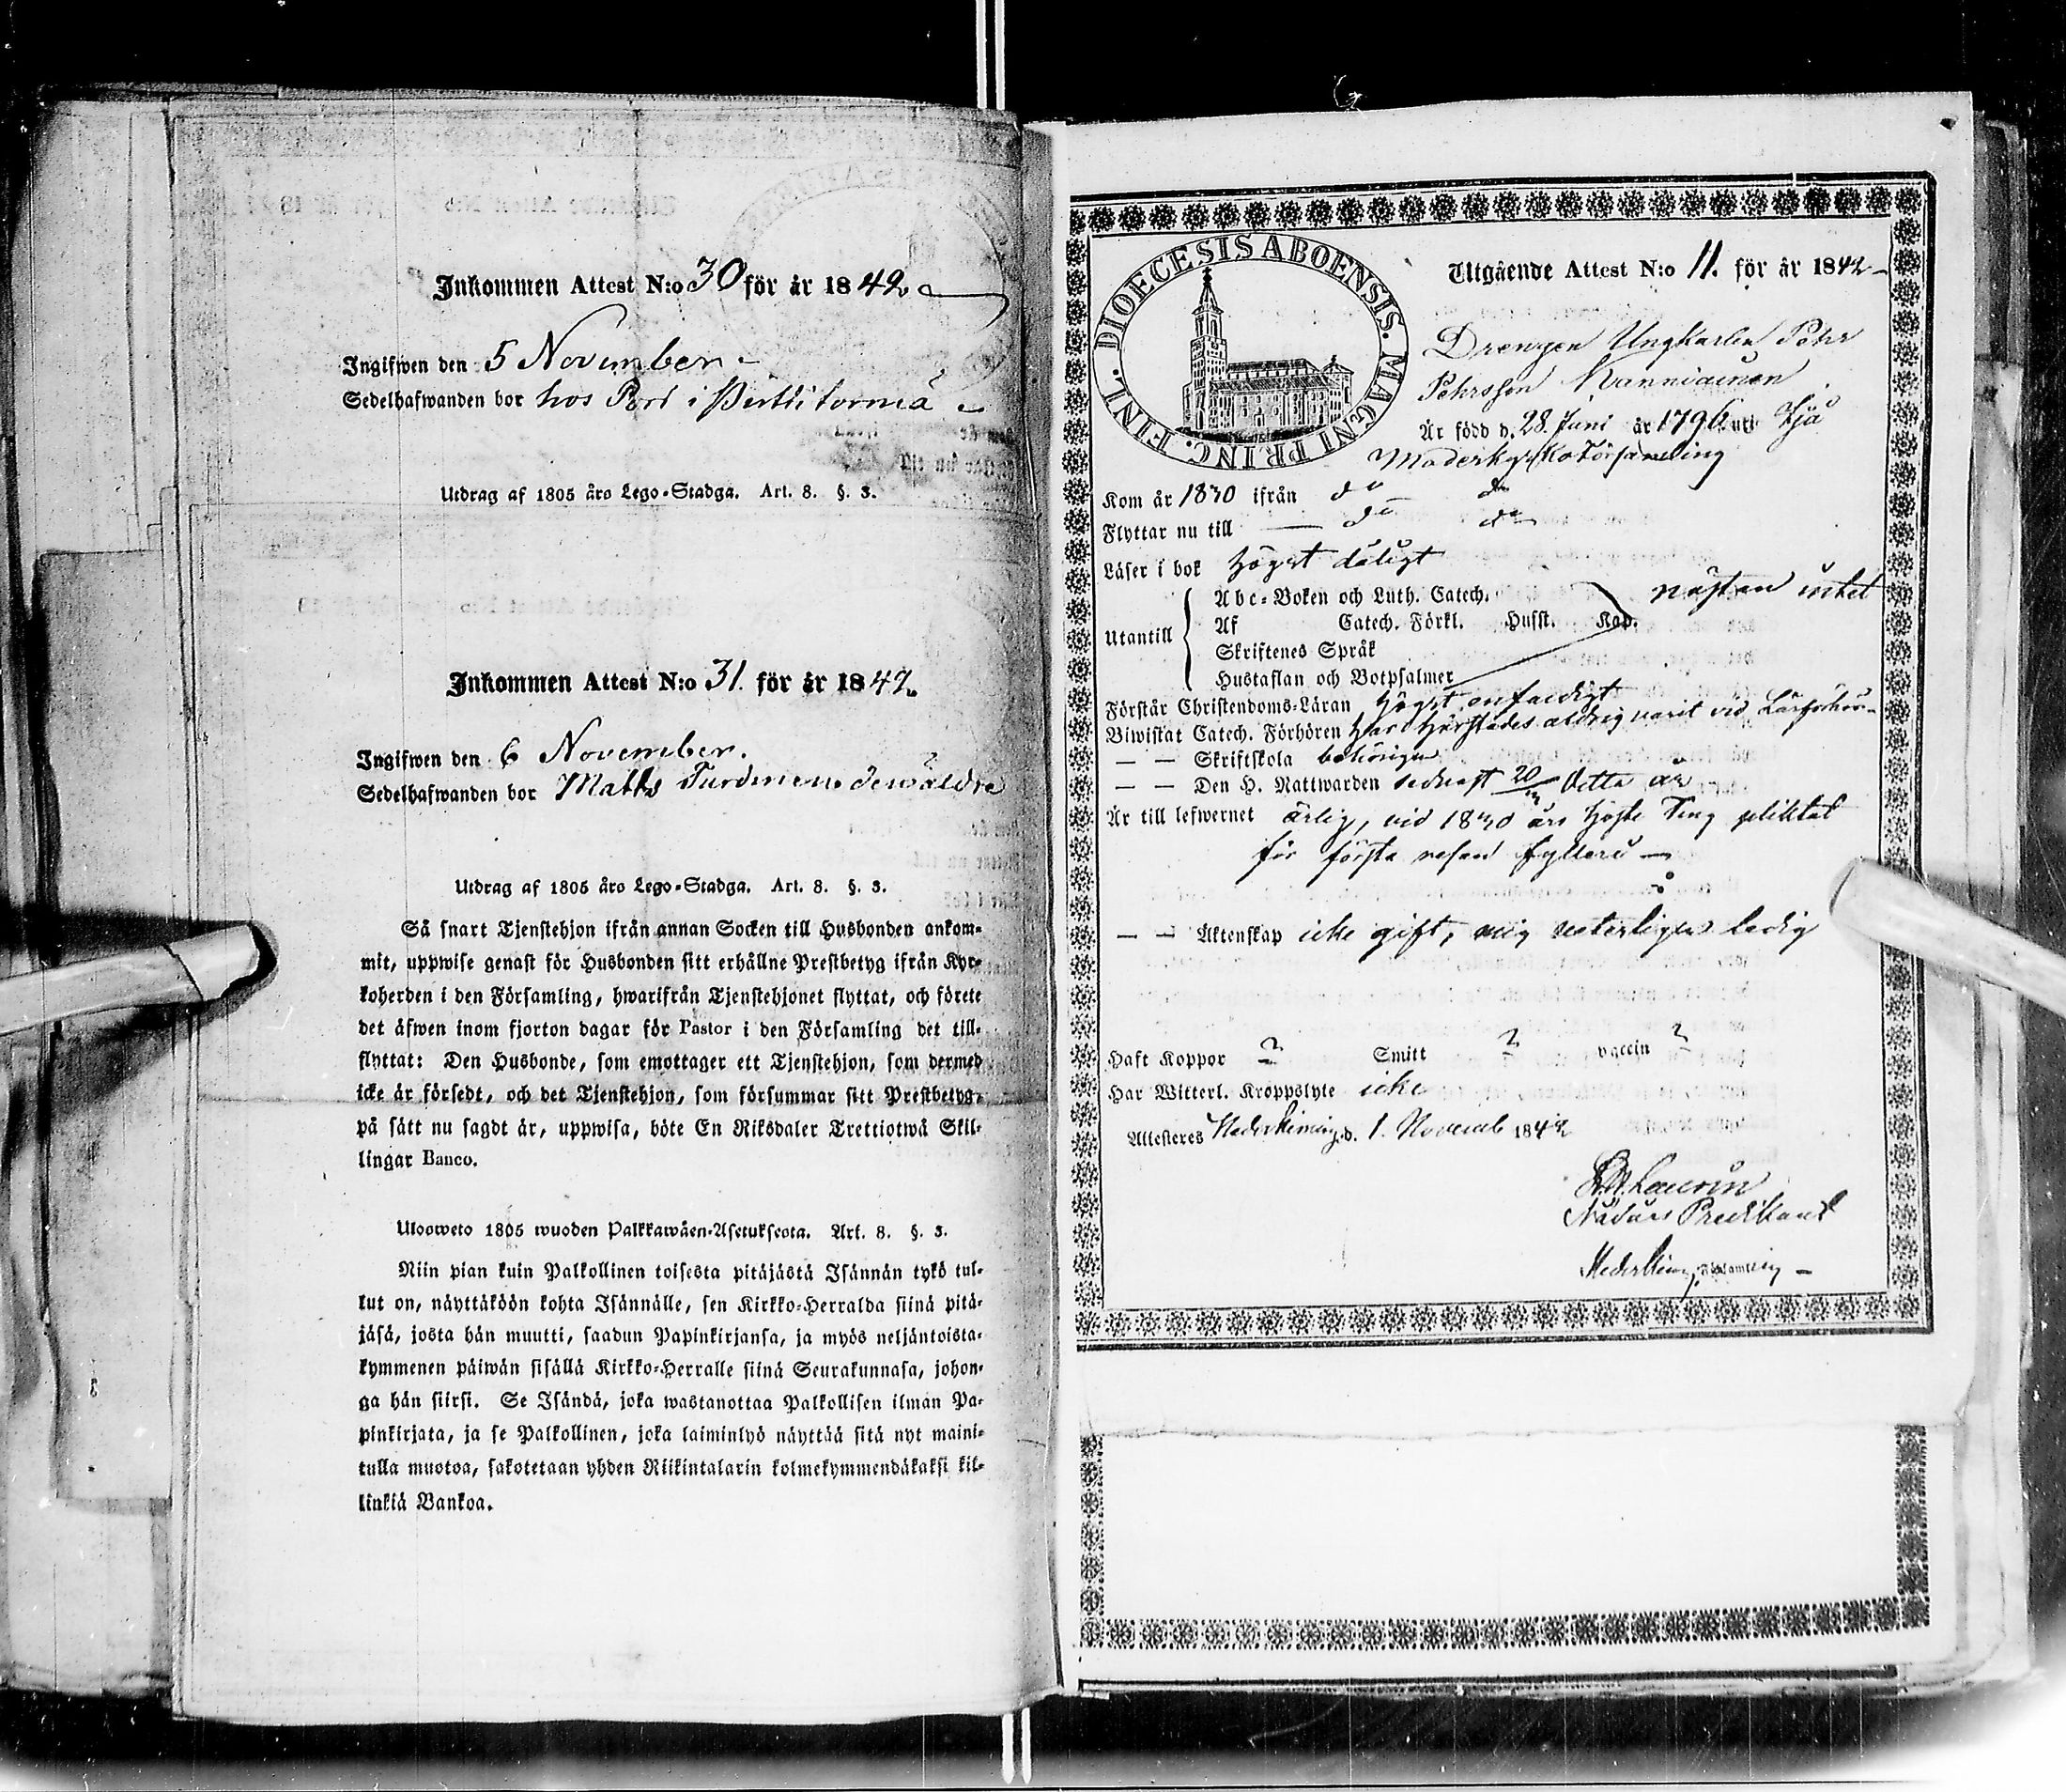 Inkommen Attest N:o 30 för år 1842
Ingifwen den 5 November
Sedelhafwanden bor hos Pori i Perttikormå
Utdrag af 1805 års Lego-Stadga. Art. 8. §. 3.
Inkommen Attest N:o 31. för år 1842.
Ingifwen den 6 November.
Sedelhafwanden bor Matts
Utdrag af 1805 års Lego-Stadga. Art. 8. §. 3.
Så snart Tjenstehjon ifrån annan Socken till Husbonden ankom-
mit, uppwise genast för Husbonden sitt erhållne Prestbetyg ifrån Kyr-
koherden i den Församling, hwarifrån Tjenstehjonet flyttat, och förete
det äfwen inom fjorton dagar för Pastor i den Församling det till-
flyttat: Den Husbonde, som emottager ett Tjenstehjon, som dermed
icke är försedt, och det Tjenstehjon, som försummar sitt Prestbetyg,
på sätt nu sagdt är, uppwisa, böte En Riksdaler Trettiotwå Skil-
lingar Banco.
Ulosweto 1805 wuoden Palkkawäen-Asetuksesta. Art. 8. §. 3.
Niin pian kuin Palkollinen toisesta pitäjästä Isännän tykö tul-
lut on, näyttäköön kohta Isännälle, sen Kirkko-Herralda siinä pitä-
jäsä, josta hän muutti, saadun Papinkirjansa, ja myös neljäntoista-
kymmenen päiwän sisällä Kirkko-Herralle siinä Seurakunnasa, johon-
ga hän siirsi. Se Isändä, joka wastanottaa Palkollisen ilman Pa-
pinkirjata, ja se Palkollinen, joka laiminlyö näyttää sitä nyt maini-
tulla muotoa, sakotetaan yhden Riikintalarin kolmekymmendäkaksi kil-
linkiä Bankoa.
DIOECESIS ABOENSIS. MAGNI PRINC. FINL.
Utgående Attest N:o 11. för år 1842
Drengen Ungkarlen Pehr
Pehrsson Manniainen
Är född d. 28. Juni år 1796 uti Ejä
Moderkyrko Församling
Kom år 1830 ifrån do do
Flyttar nu till do do
Läser i bok högst dåligt
Utantill
Abc-Boken och Luth. Catech. nästan intet
Af Catech. Förkl. Husst. Kap.
Skriftenes Språk
Hustaflan och Botpsalmer
Förstår Christendoms-Läran högst enfaldigt
Biwistat Catech. Förhören har härstädes aldrig varit vid Läsförhör
— — Skriftskola behörigen
— — Den H. Nattwarden sednast 20 detta år
Är till lefwernet ärlig, vid 1840 års höste Ting pliktat
för första resan fylleri —
— — Äktenskap icke gift, mig veterligen ledig
Haft Koppor ? Smitt ? vaccin ?
Har Witterl. Kroppslyte icke
Attesteres Nederkiming d. 1. Novemb 1842
Laurin
Nådårs Predikant
Nederkiming Församling